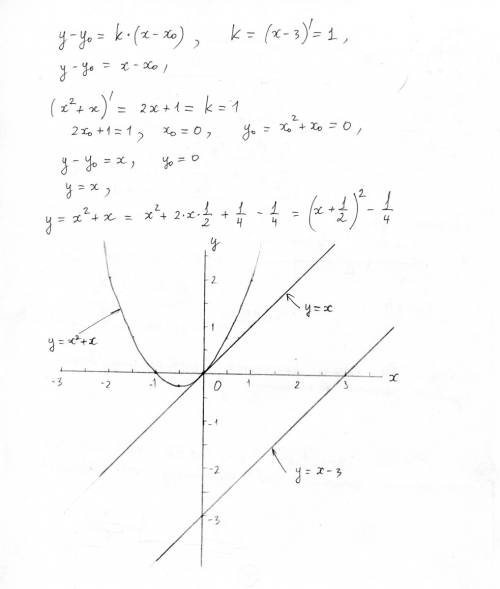 y - y₀ = k·(x - x₀) , k = (x - 3)' = 1 ,
y - y₀ = x - x₀ ,
(x² + x)' = 2x + 1 = k = 1
2x₀ + 1 = 1 , x₀ = 0 , y₀ = x₀² + x₀ = 0 ,
y - y₀ = x , y₀ = 0
y = x ,
y = x² + x = x² + 2·x·1/2 + 1/4 - 1/4 = (x + 1/2)² - 1/4
y
2
y = x
1
y = x² + x
-3 -2 -1 0 1 2 3 x
-1
-2
y = x - 3
-3